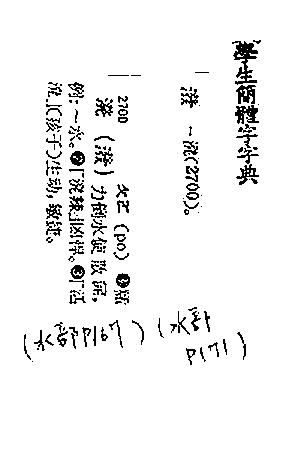 學生簡體字字典
潑 ～泼(2700)。
2700
泼(潑) ㄆㄛ (po) ❶
力倒水使散開，
例：～水。❷「泼辣」凶悍。❸「活
泼」(孩子)生动，敏捷。
(水部P167)
(水部
P171)